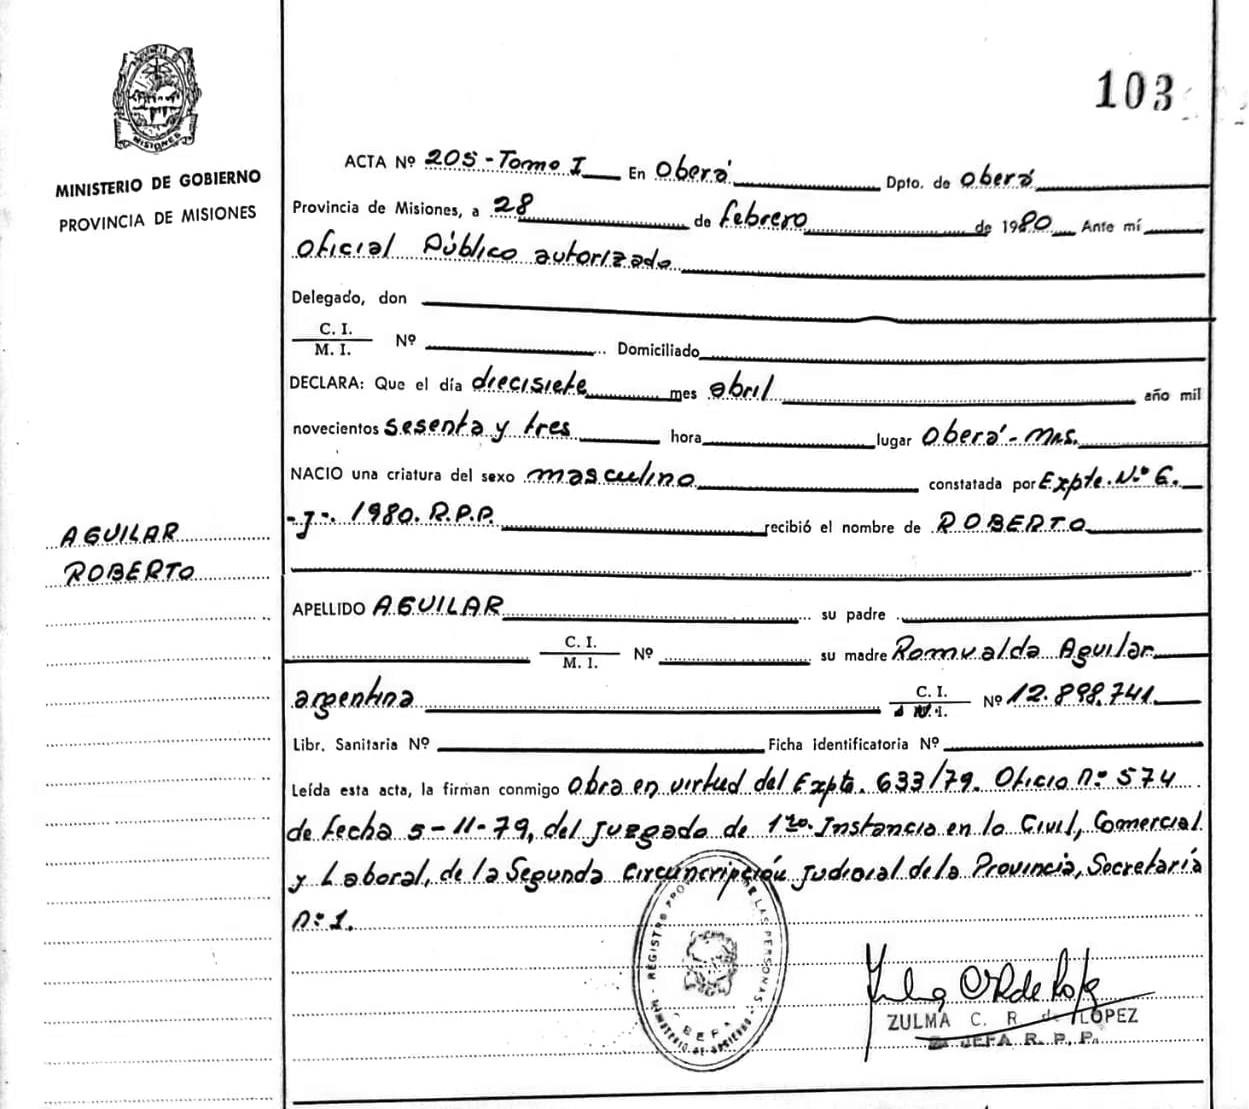 103
MISIONES
MINISTERIO DE GOBIERNO
PROVINCIA DE MISIONES
AGUILAR
ROBERTO
ACTA Nº 205 - Tomo I En Oberá Dpto. de Oberá
Provincia de Misiones, a 28 de febrero de 1980 Ante mí
Oficial Público autorizado
Delegado, don
C. I.
M. I. Nº Domiciliado
DECLARA: Que el día diecisiete mes abril año mil
novecientos sesenta y tres hora lugar Oberá - Mns.
NACIO una criatura del sexo masculino constatada por Expte. Nº 6.
- J -. 1980. R.P.P. recibió el nombre de ROBERTO
APELLIDO AGUILAR su padre
C. I.
M. I. Nº su madre Romualda Aguilar
argentina C. I. Nº 12.898.741
Libr. Sanitaria Nº Ficha identificatoria Nº
Leída esta acta, la firman conmigo Obra en virtud del Expte. 633/79. Oficio nº 574
de fecha 5-11-79, del Juzgado de 1ra. Instancia en lo Civil, Comercial
y Laboral, de la Segunda Circuncripción Judicial de la Provincia, Secretaría
nº 1.
REGISTRO DE LAS PERSONAS
MINISTERIO DE GOBIERNO
ZULMA C. R. de LOPEZ
JEFA R. P. P.